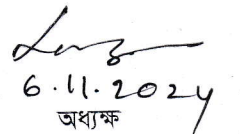 6.11.2024
অধ্যক্ষ